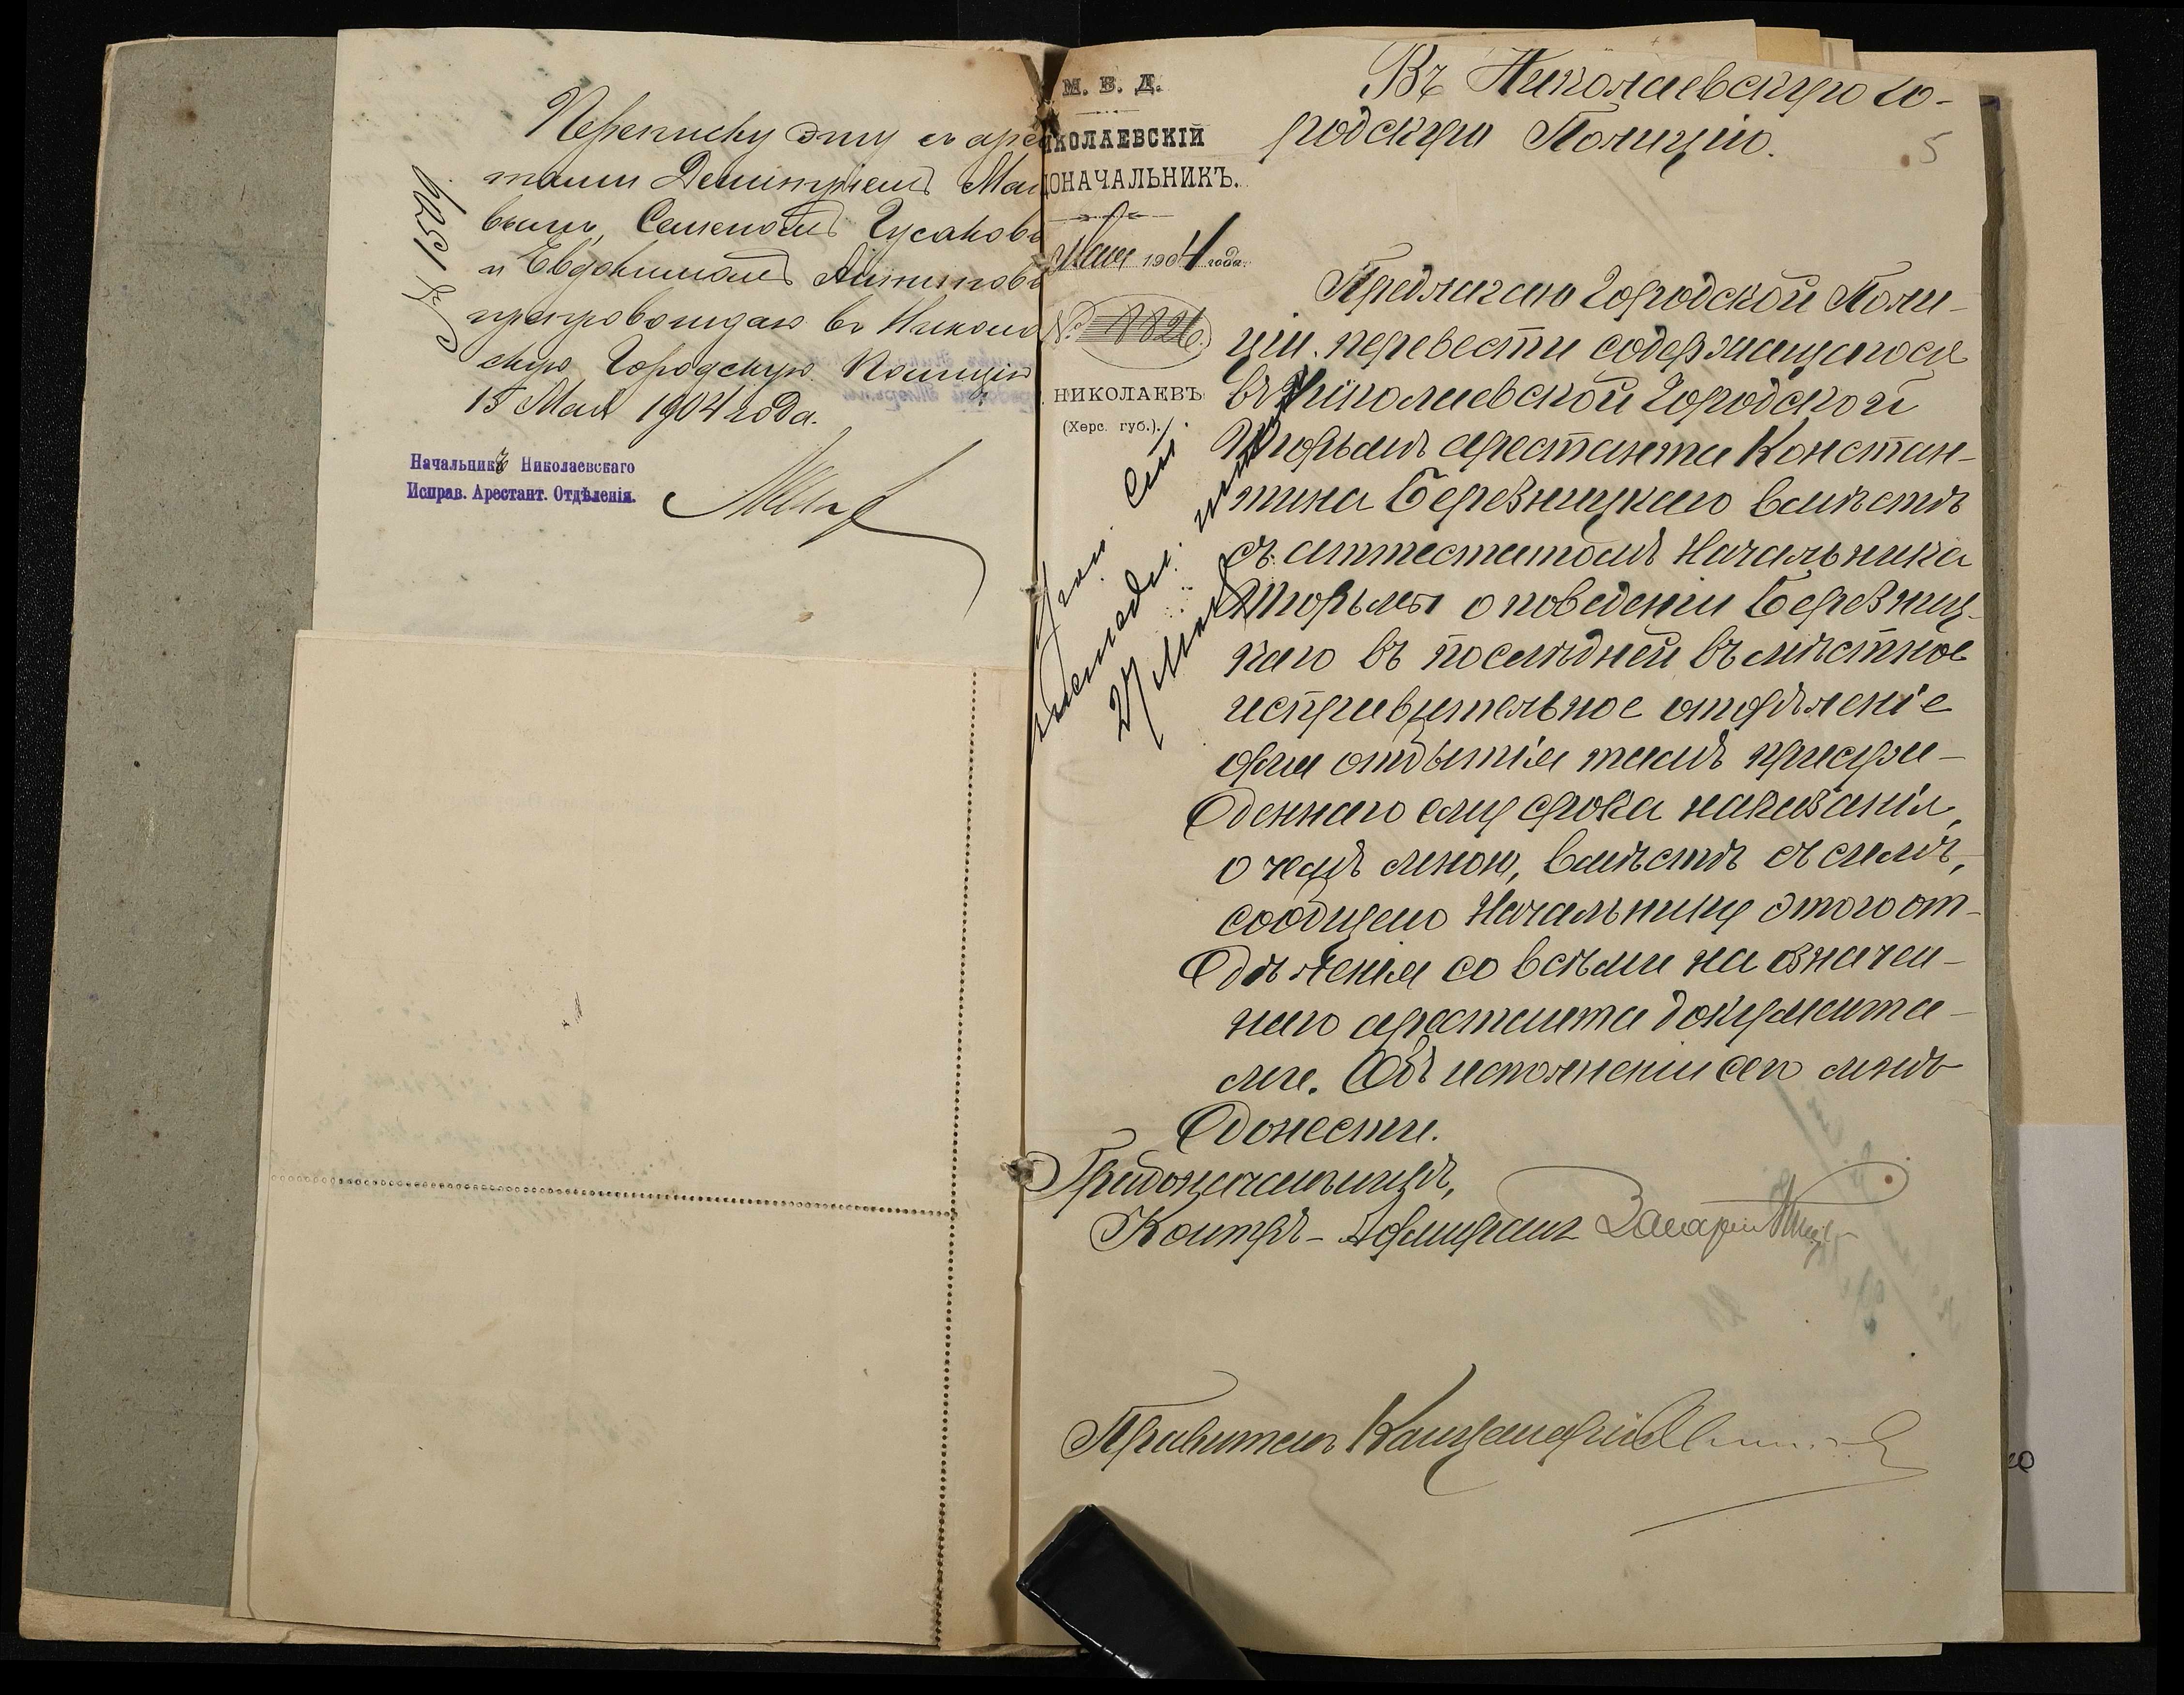 Переписку эту съ арес
тами Демитріемъ Мак
вымъ, Семеномъ Гусаковы
и Евдокимомъ
препровождаю въ Никола
скую Городскую Полицію
15 Мая 1904 года.
Начальникъ Николаевскаго
Исправ. Арестант. Отдѣленія.
№ 1504
М. В. Д.
НИКОЛАЕВСКІЙ
ДОНАЧАЛЬНИКЪ.
Мая 1904 года.
№ 1826
НИКОЛАЕВЪ
(Херс. губ.).
27 Мая
Въ Николаевскую Го-
родскую Полицію.
5
Предлагаю Городской Поли-
ціи перевести содержащагося
въ Николаевской Городской
Тюрьмѣ арестанта Констан-
тина Березницкаго вмѣстѣ
съ аттестатомъ Начальника
Тюрьмы о поведеніи Березниц-
каго въ послѣдней въ мѣстное
исправительное отдѣленіе
для отбытія тамъ присуж-
деннаго ему срока наказанія,
о чемъ мною, вмѣстѣ съ симъ,
сообщено Начальнику этого от-
дѣленія со всѣми на означен-
наго арестанта документа-
ми. Объ исполненіи сего мнѣ
донести.
Градоначальникъ,
Контръ-Адмиралъ
Правитель Канцеляріи